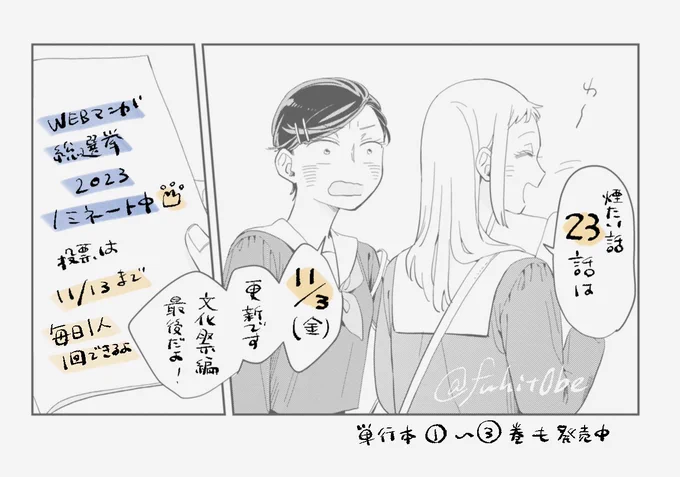 わ〜
煙たい話
23
話は
11/3
(金)
更新です
文化祭編
最後だよ!
WEBマンガ
総選挙
2023
ノミネート中
投票は
11/13まで
毎日1人
1回できるよ
@fuhit0be
単行本①〜③巻も発売中